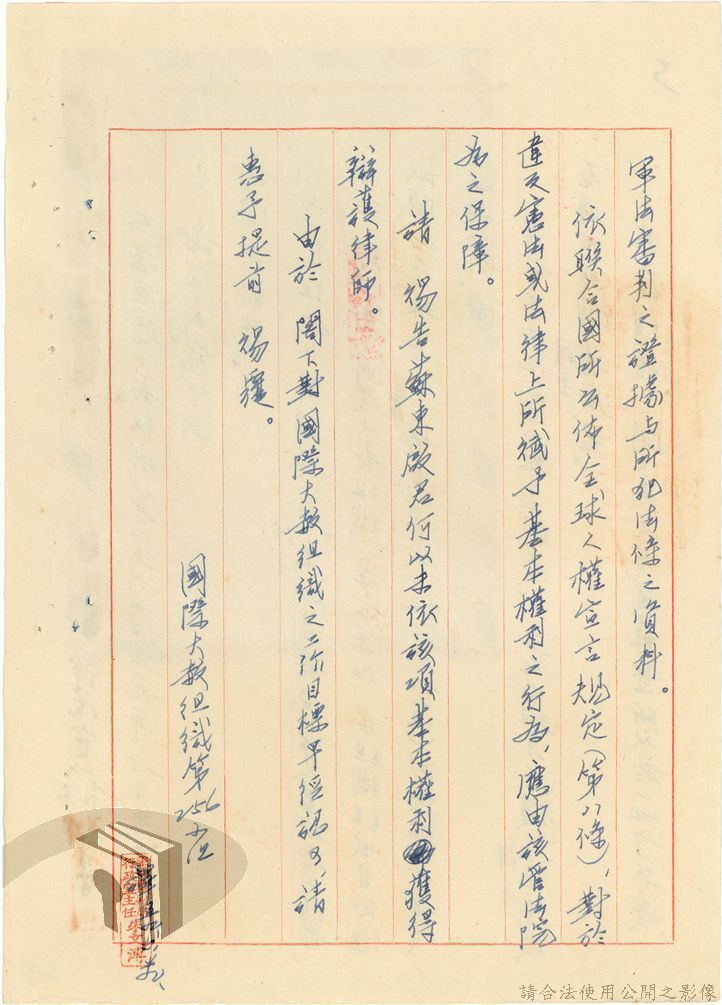 軍法審判之證據与所犯法條之資料。
依聯合國所公佈全球人權宣言規定(第八條)，對於
違反憲法或法律上所賦予基本權利之行為，應由該管法院
為之保障。
請 賜告蘇東啟君何以未依該項基本權利獲得
辯護律師。
由於 閣下對國際大赦組織之工作目標早經認可，請
惠予提前 賜覆。
國際大赦組織第256小組
行政室主任 朱文溥
請合法使用公開之影像